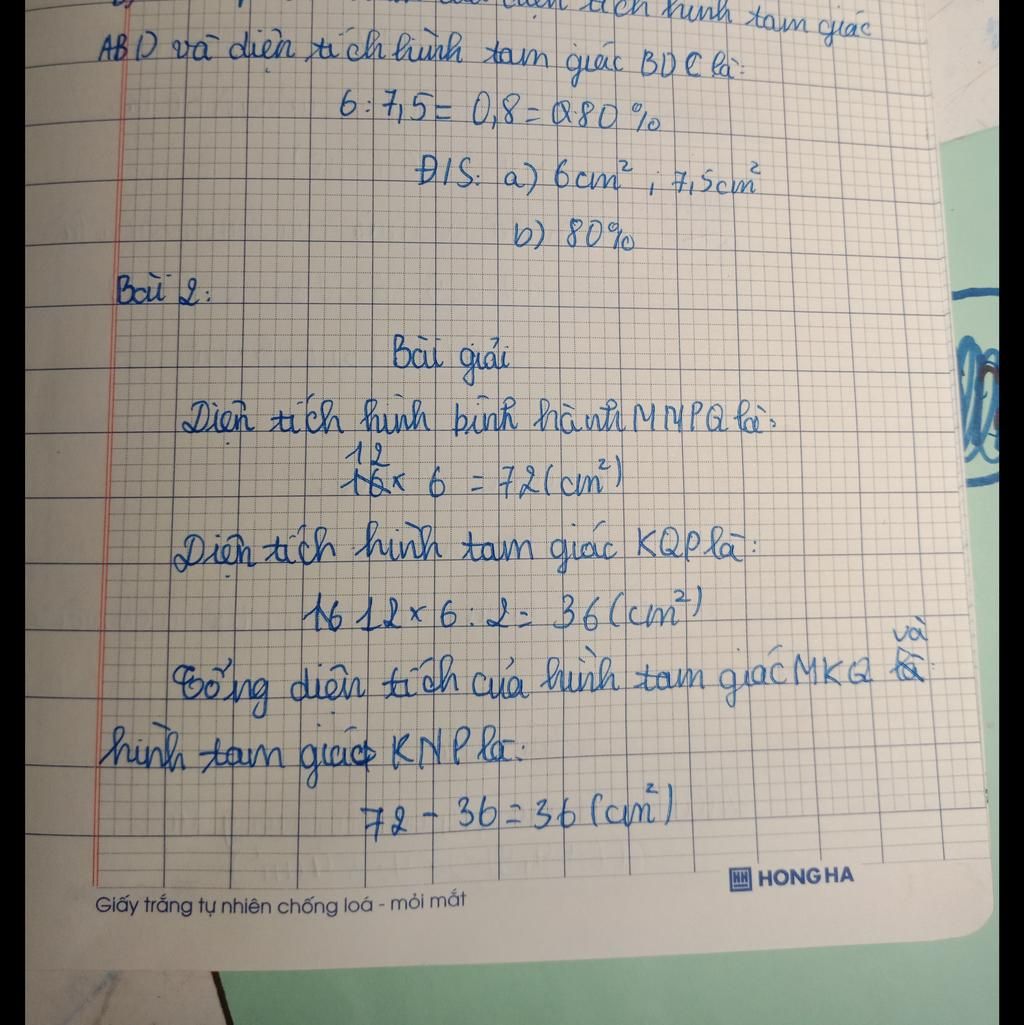 diện tích hình tam giác
ABD và diện tích hình tam giác BDC là:
6 : 7,5 = 0,8 = 80 %
Đ/S: a) 6cm² ; 7,5cm²
b) 80%
Bài 2:
Bài giải
Diện tích hình bình hành MNPQ là:
12
16 x 6 = 72 (cm²)
Diện tích hình tam giác KQP là:
16 12 x 6 : 2 = 36 (cm²)
và
Tổng diện tích của hình tam giác MKQ là
hình tam giác KNP là:
72 - 36 = 36 (cm²)
HH HONG HA
Giấy trắng tự nhiên chống loá - mỏi mắt